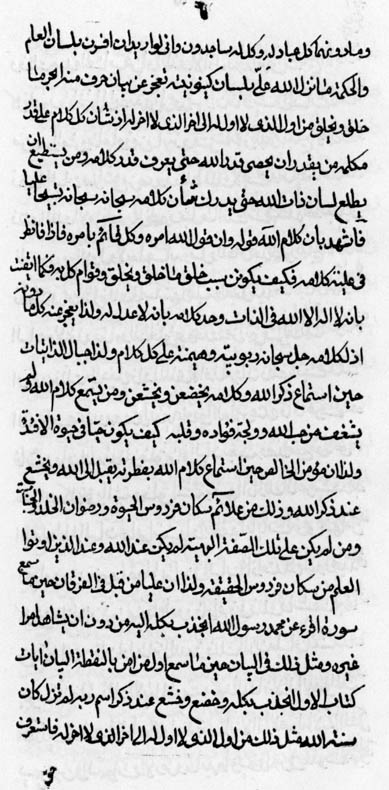 وما دونهما كل عباد له وكل له ساجدون واني لو اريد ان افسرن بلسان العلم
والحكمة ما نزل الله علي بلسان كينونيته نعجز عن بيان حرف منه ابحر ما
خلق ويخلق من اول الذي لا اول له الى اخر الذي لا اخر له لان شان كل كلام على قدر
متكلمه من يقدر ان يحصي قدر الله حتى يعرف قدر كلامه ومن يستطيع ان
يطلع لسان ذات الله حتى يدرك شأن كلامه سبحانه سبحانه تسبيحا عليا
فاشهد بان كلام الله قوله وان قول الله امره وكل قائم بامره فاذا فانظر
في علية كلامه فكيف يكونن سبب خلق ما خلق ويخلق وقوام كل به وكما ايقنت
بانه لا اله الا الله في الذات وحد كلامه بانه لا عدل له ولذا يعجز عنه كل ما دونه
اذ لكلامه جل سبحانه ربوبية وهيمنة على كل كلام ولذا جبال الذايتات
حين استماع ذكر الله وكلامه يخضعن ويخشعن ومن يستمع كلام الله ولم
يشغف من حب الله ووله فؤاده وقلبه كيف يكون حيا في حيوة الافئدة
ولذا ان مؤمن الخالص حين استماع كلام الله بفطرته يقبل الى الله ويخشع
عند ذكر الله وذلك من علائم سكان فردوس الحيوة ورضوان الخلد
ومن لم يكن على تلك الصفة الهية لم يكن عند الله وعند الذين اوتوا
العلم من سكان فردوس الحقيقة ولذا ان عليا من قبل في الفرقان حين ما سمع
سورة اقرء عن محمد رسول الله انجذب بكله اليه من دون ان يشاهد امرا
غيره ومثل ذلك في البيان حين ما سمع اول من امن بالنقطة البيان ايات
كتاب الاول انجذب بكله وخضع وخشع عند ذكر اسم ربه لم تزل كان
سنة الله مثل ذلك من اول الذي لا اول له الى اخر الذي لا اخر له فاستعرف